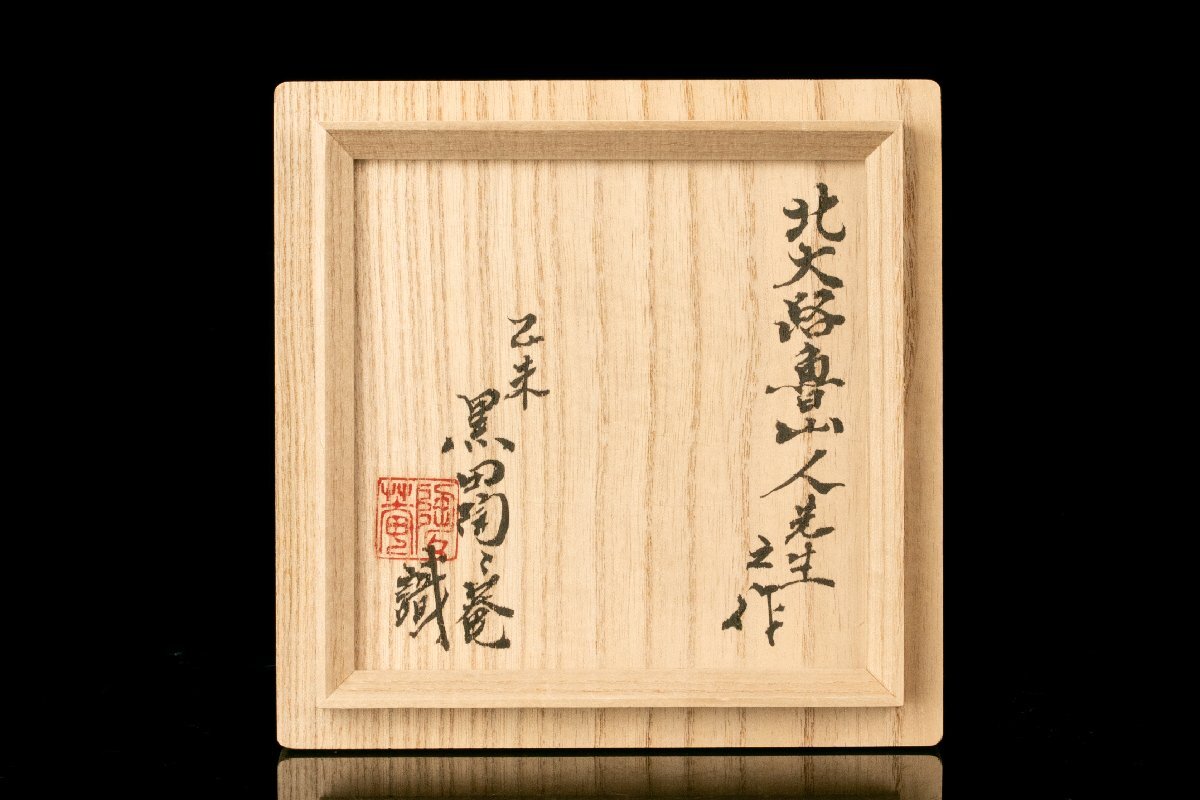 北大路魯山人先生
之作
乙未
黒田陶々菴
識
陶々
菴